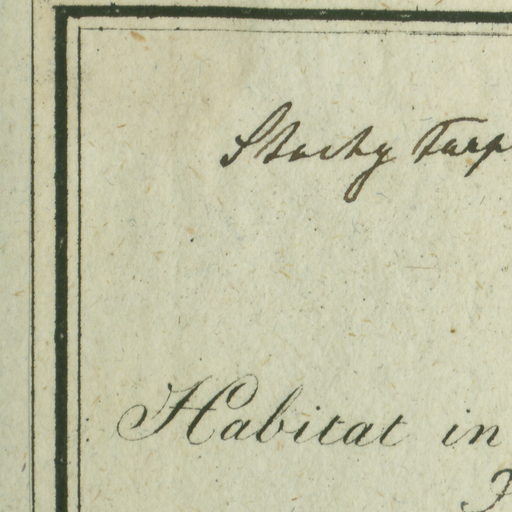 Stachy tarp
Habitat in